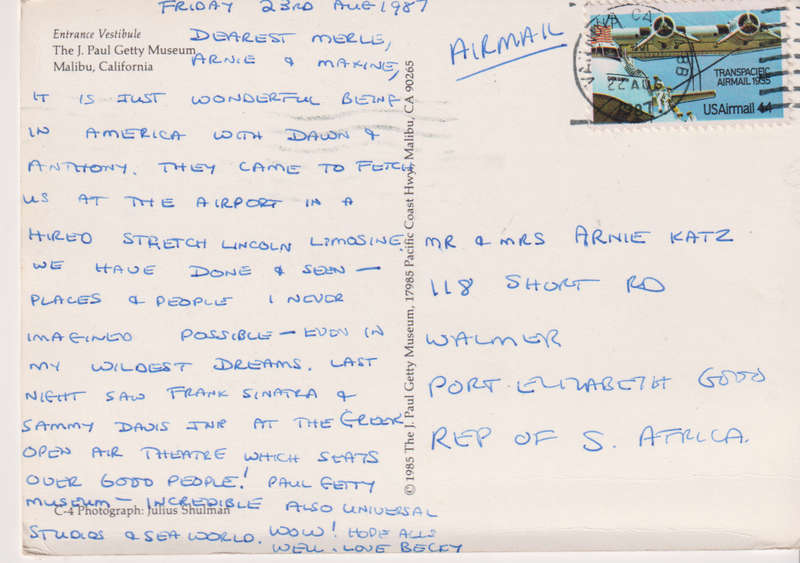 FRIDAY 23RD AUG 1987
Entrance Vestibule
The J. Paul Getty Museum
Malibu, California
DEAREST MERLE,
ARNIE & MAXINE,
IT IS JUST WONDERFUL BEING
IN AMERICA WITH DAWN &
ANTHONY. THEY CAME TO FETCH
US AT THE AIRPORT IN A
HIRED STRETCH LINCOLN LIMOSINE.
WE HAVE DONE & SEEN —
PLACES & PEOPLE I NEVER
IMAGINED POSSIBLE — EVEN IN
MY WILDEST DREAMS. LAST
NIGHT SAW FRANK SINATRA &
SAMMY DAVIS JNR AT THE GREEK
OPEN AIR THEATRE WHICH SEATS
OVER 6000 PEOPLE! PAUL GETTY
MUSEUM — INCREDIBLE ALSO UNIVERSAL
STUDIOS & SEA WORLD. WOW! HOPE ALLS
WELL. LOVE BECKY
C-4 Photograph: Julius Shulman
© 1985 The J. Paul Getty Museum, 17985 Pacific Coast Hwy, Malibu, CA 90265
AIRMAIL
CA
22 AUG
1987
TRANSPACIFIC
AIRMAIL 1935
USAirmail 44
MR & MRS ARNIE KATZ
118 SHORT RD
WALMER
PORT ELIZABETH 6000
REP OF S. AFRICA.